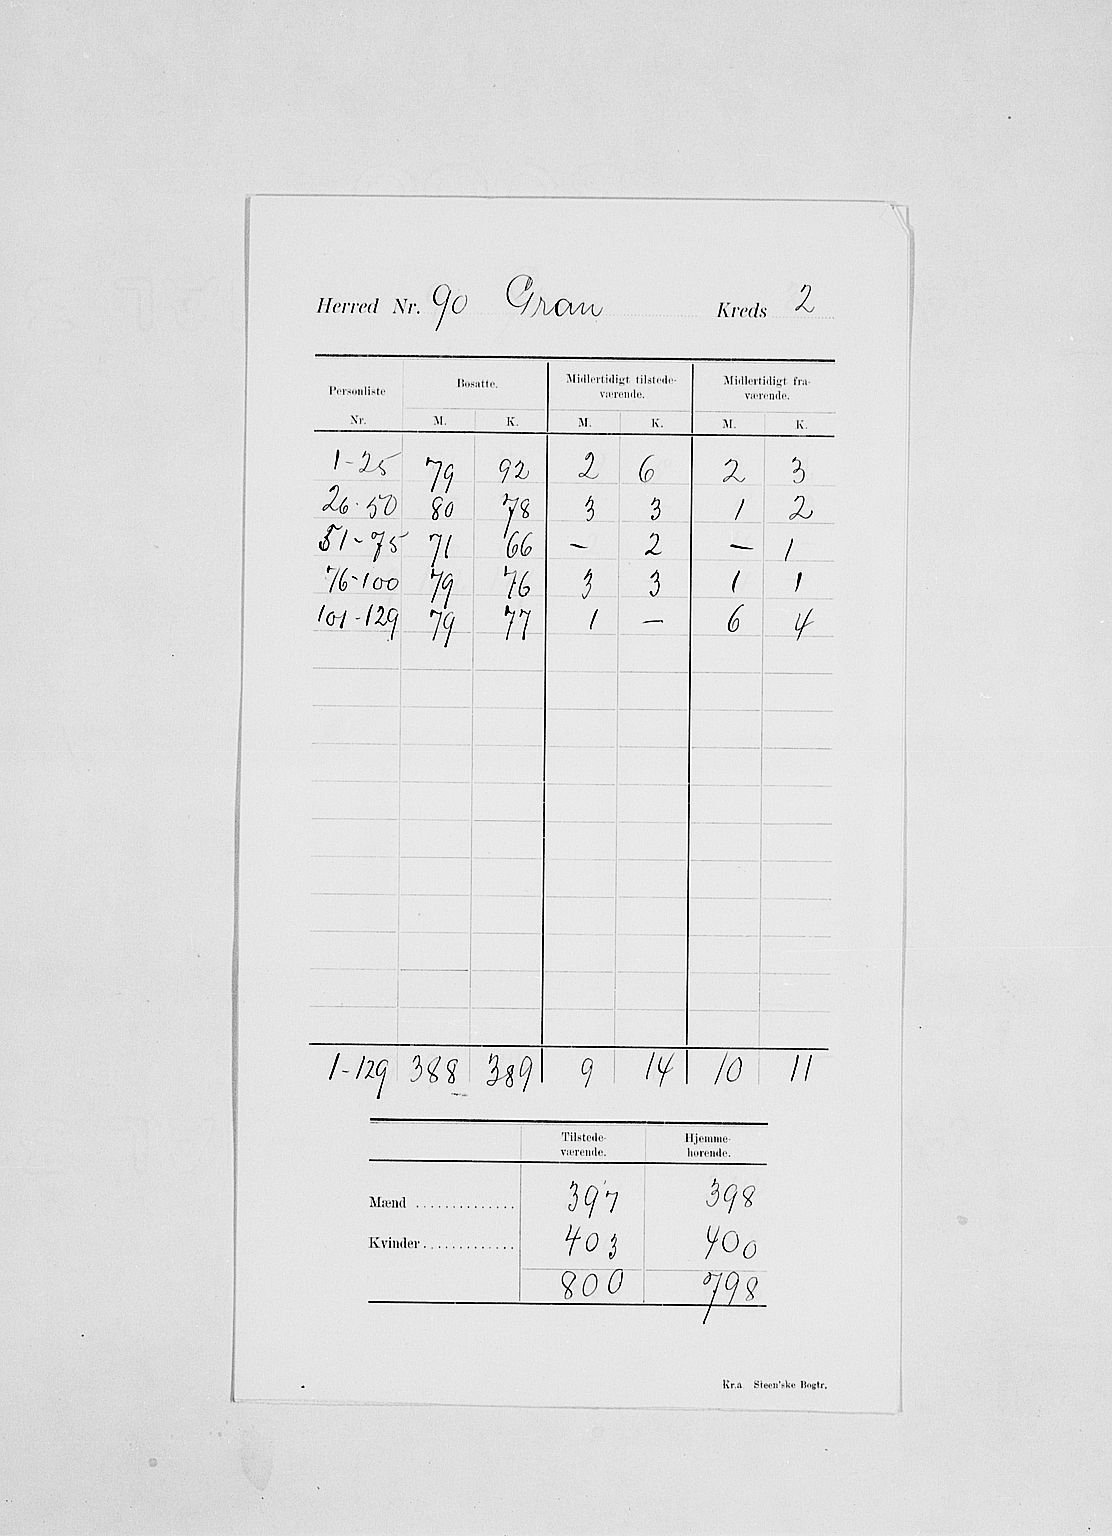 Herred Nr. 90 Gran Kreds 2
Personliste Bosatte. Midlertidigt tilstede- Midlertidigt fra-
værende. værende.
Nr. M. K. M. K. M. K.
1-25 79 92 2 6 2 3
26-50 80 78 3 3 1 2
51-75 71 66 — 2 — 1
76-100 79 76 3 3 1 1
101-129 79 77 1 — 6 4
1-129 388 389 9 14 10 11
Tilstede- Hjemme-
værende. hørende.
Mænd .............. 397 398
Kvinder ............. 403 400
800 798
Kr.a Steen'ske Bogtr.